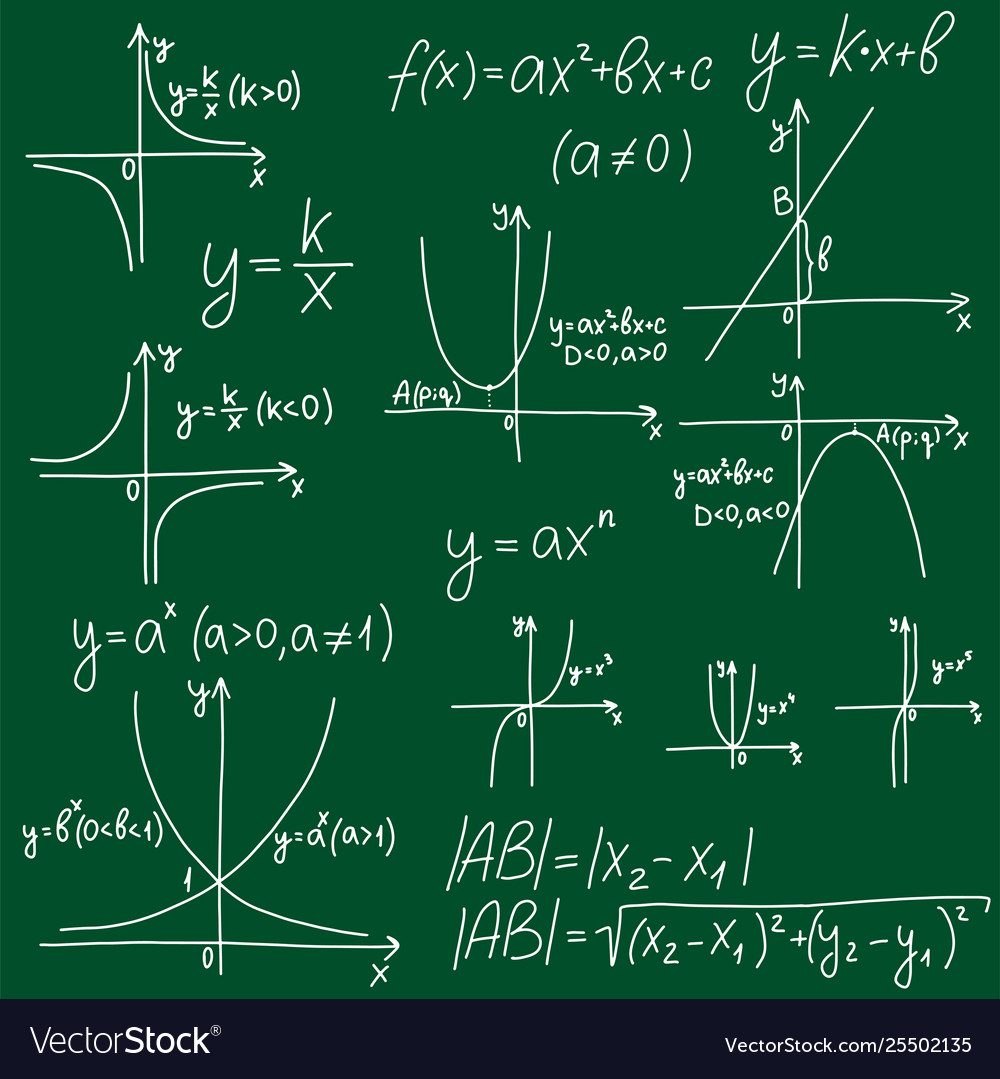 y
y=k/x (k>0)
0
x
f(x)=ax²+bx+c
(a≠0)
y=k·x+b
y
B
b
0
x
y=k/x
y
y=ax²+bx+c
D<0,a>0
A(p;q)
0
x
y
y=k/x (k<0)
0
x
y
0
A(p;q)
x
y=ax²+bx+c
D<0,a<0
y=axⁿ
y=aˣ (a>0,a≠1)
y
y=bˣ(0<b<1)
y=aˣ(a>1)
1
0
x
y
y=x³
0
x
y
y=x⁴
0
x
y
y=x⁵
0
x
|AB|=|x₂-x₁|
|AB|=√(x₂-x₁)²+(y₂-y₁)²
VectorStock®
VectorStock.com/25502135